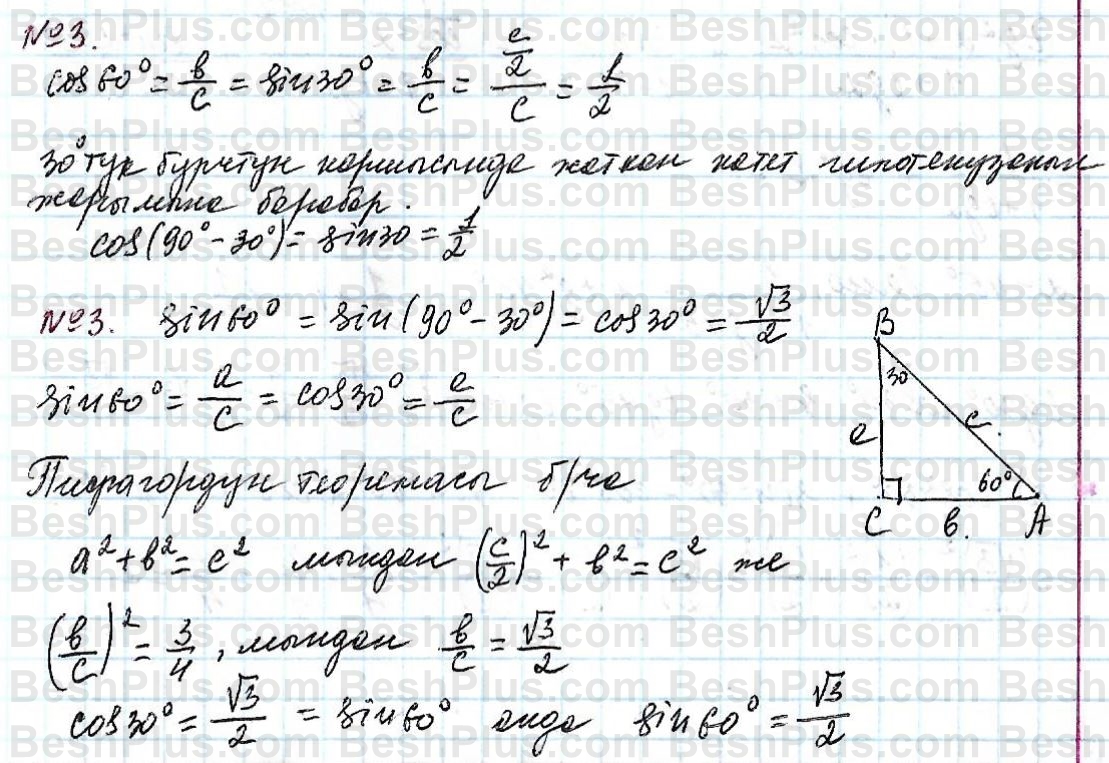 №3.
cos60° = в/c = sin30° = в/c = (c/2)/c = 1/2
30°тук бурчтун каршысында жаткан катет гипотенузанын
жарымына барабар.
cos(90° - 30°) = sin30 = 1/2
№3. sin60° = sin(90° - 30°) = cos30° = √3/2
sin60° = a/c = cos30° = a/c
Пифагордун теоремасы б/ча
a² + в² = c² мындан (c/2)² + в² = c² же
(в/c)² = 3/4, мындан в/c = √3/2
cos30° = √3/2 = sin60° анда sin60° = √3/2
B
30
a
c.
60°
C
в.
A
BeshPlus.com